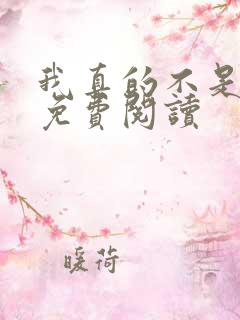 我真的不是
免費閱讀
暖荷